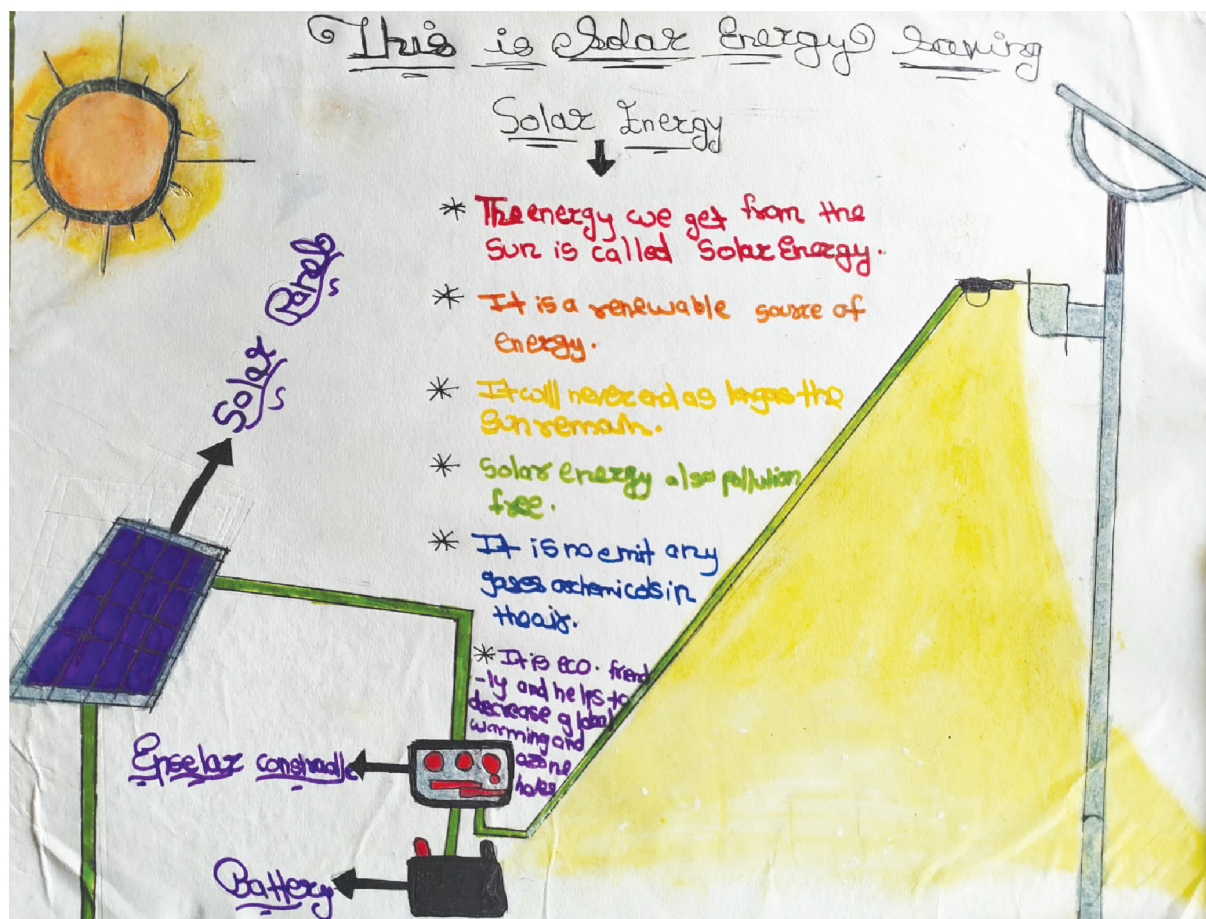 This is Solar Energy Saving
Solar Energy
* The energy we get from the
sun is called Solar Energy.
* It is a renewable source of
energy.
* It will never end as long as the
sun remain.
* Solar energy also pollution
free.
* It is no emit any
gases or chemicals in
the air.
* It is eco. friend
-ly and helps to
decrease global
warming and
ozone
holes
Solar Panel
Epselar constradle
Battery